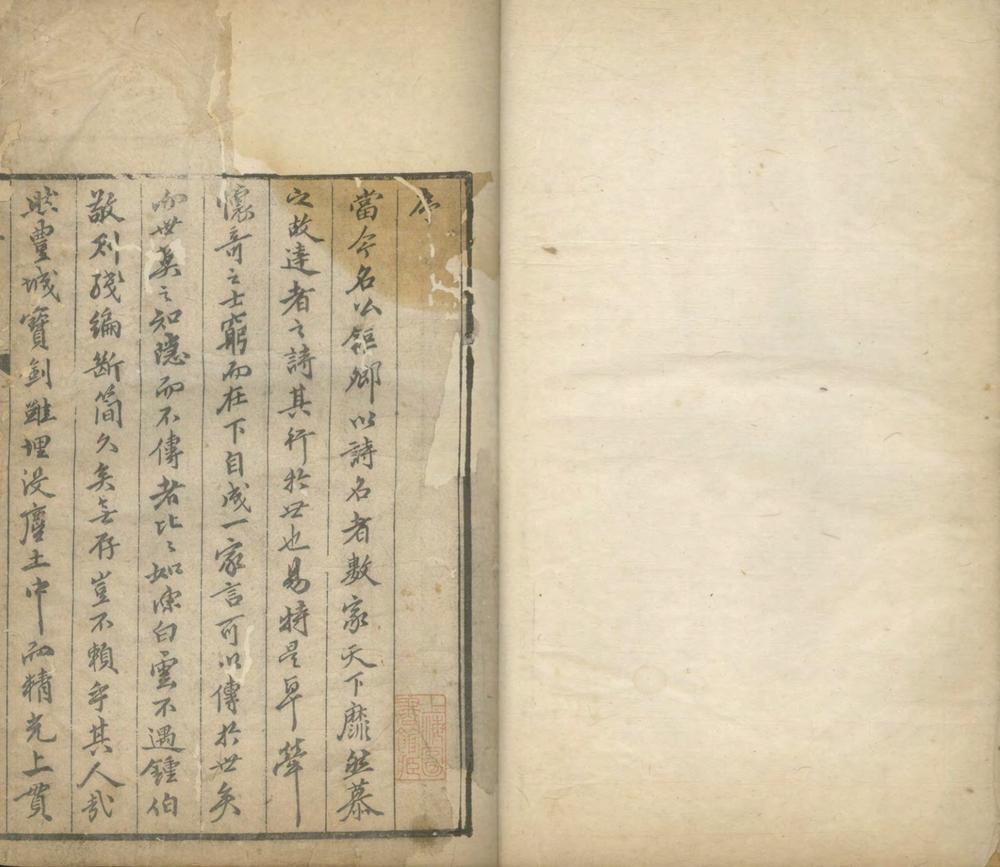 序
當今名公鉅卿以詩名者數家天下靡然慕
之故達者之詩其行於世也易特是卓犖
懷奇之士窮而在下自成一家言可以傳於世矣
而世莫之知隱而不傳者比〻如陳白雲不遇鍾伯
敬則殘編斷簡久矣無存豈不賴乎其人哉
然豐城寶劍雖埋没塵土中而精光上貫
上海圖
書館藏